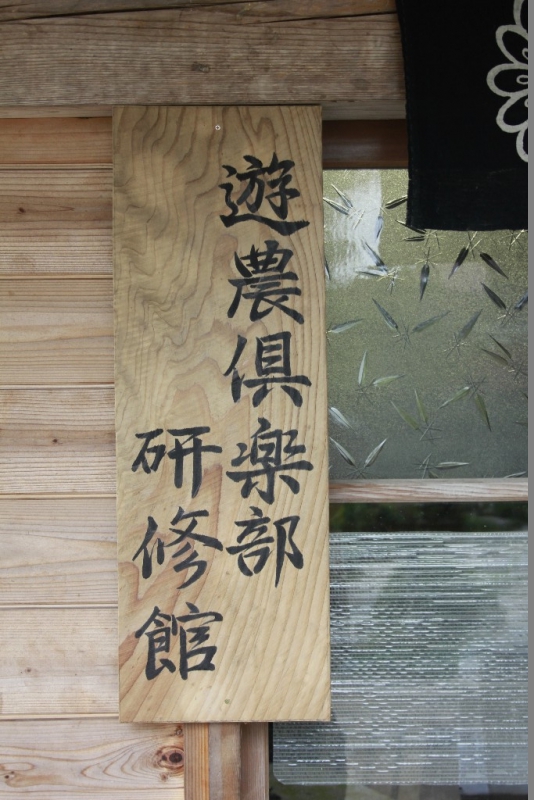 遊農倶楽部
研修館